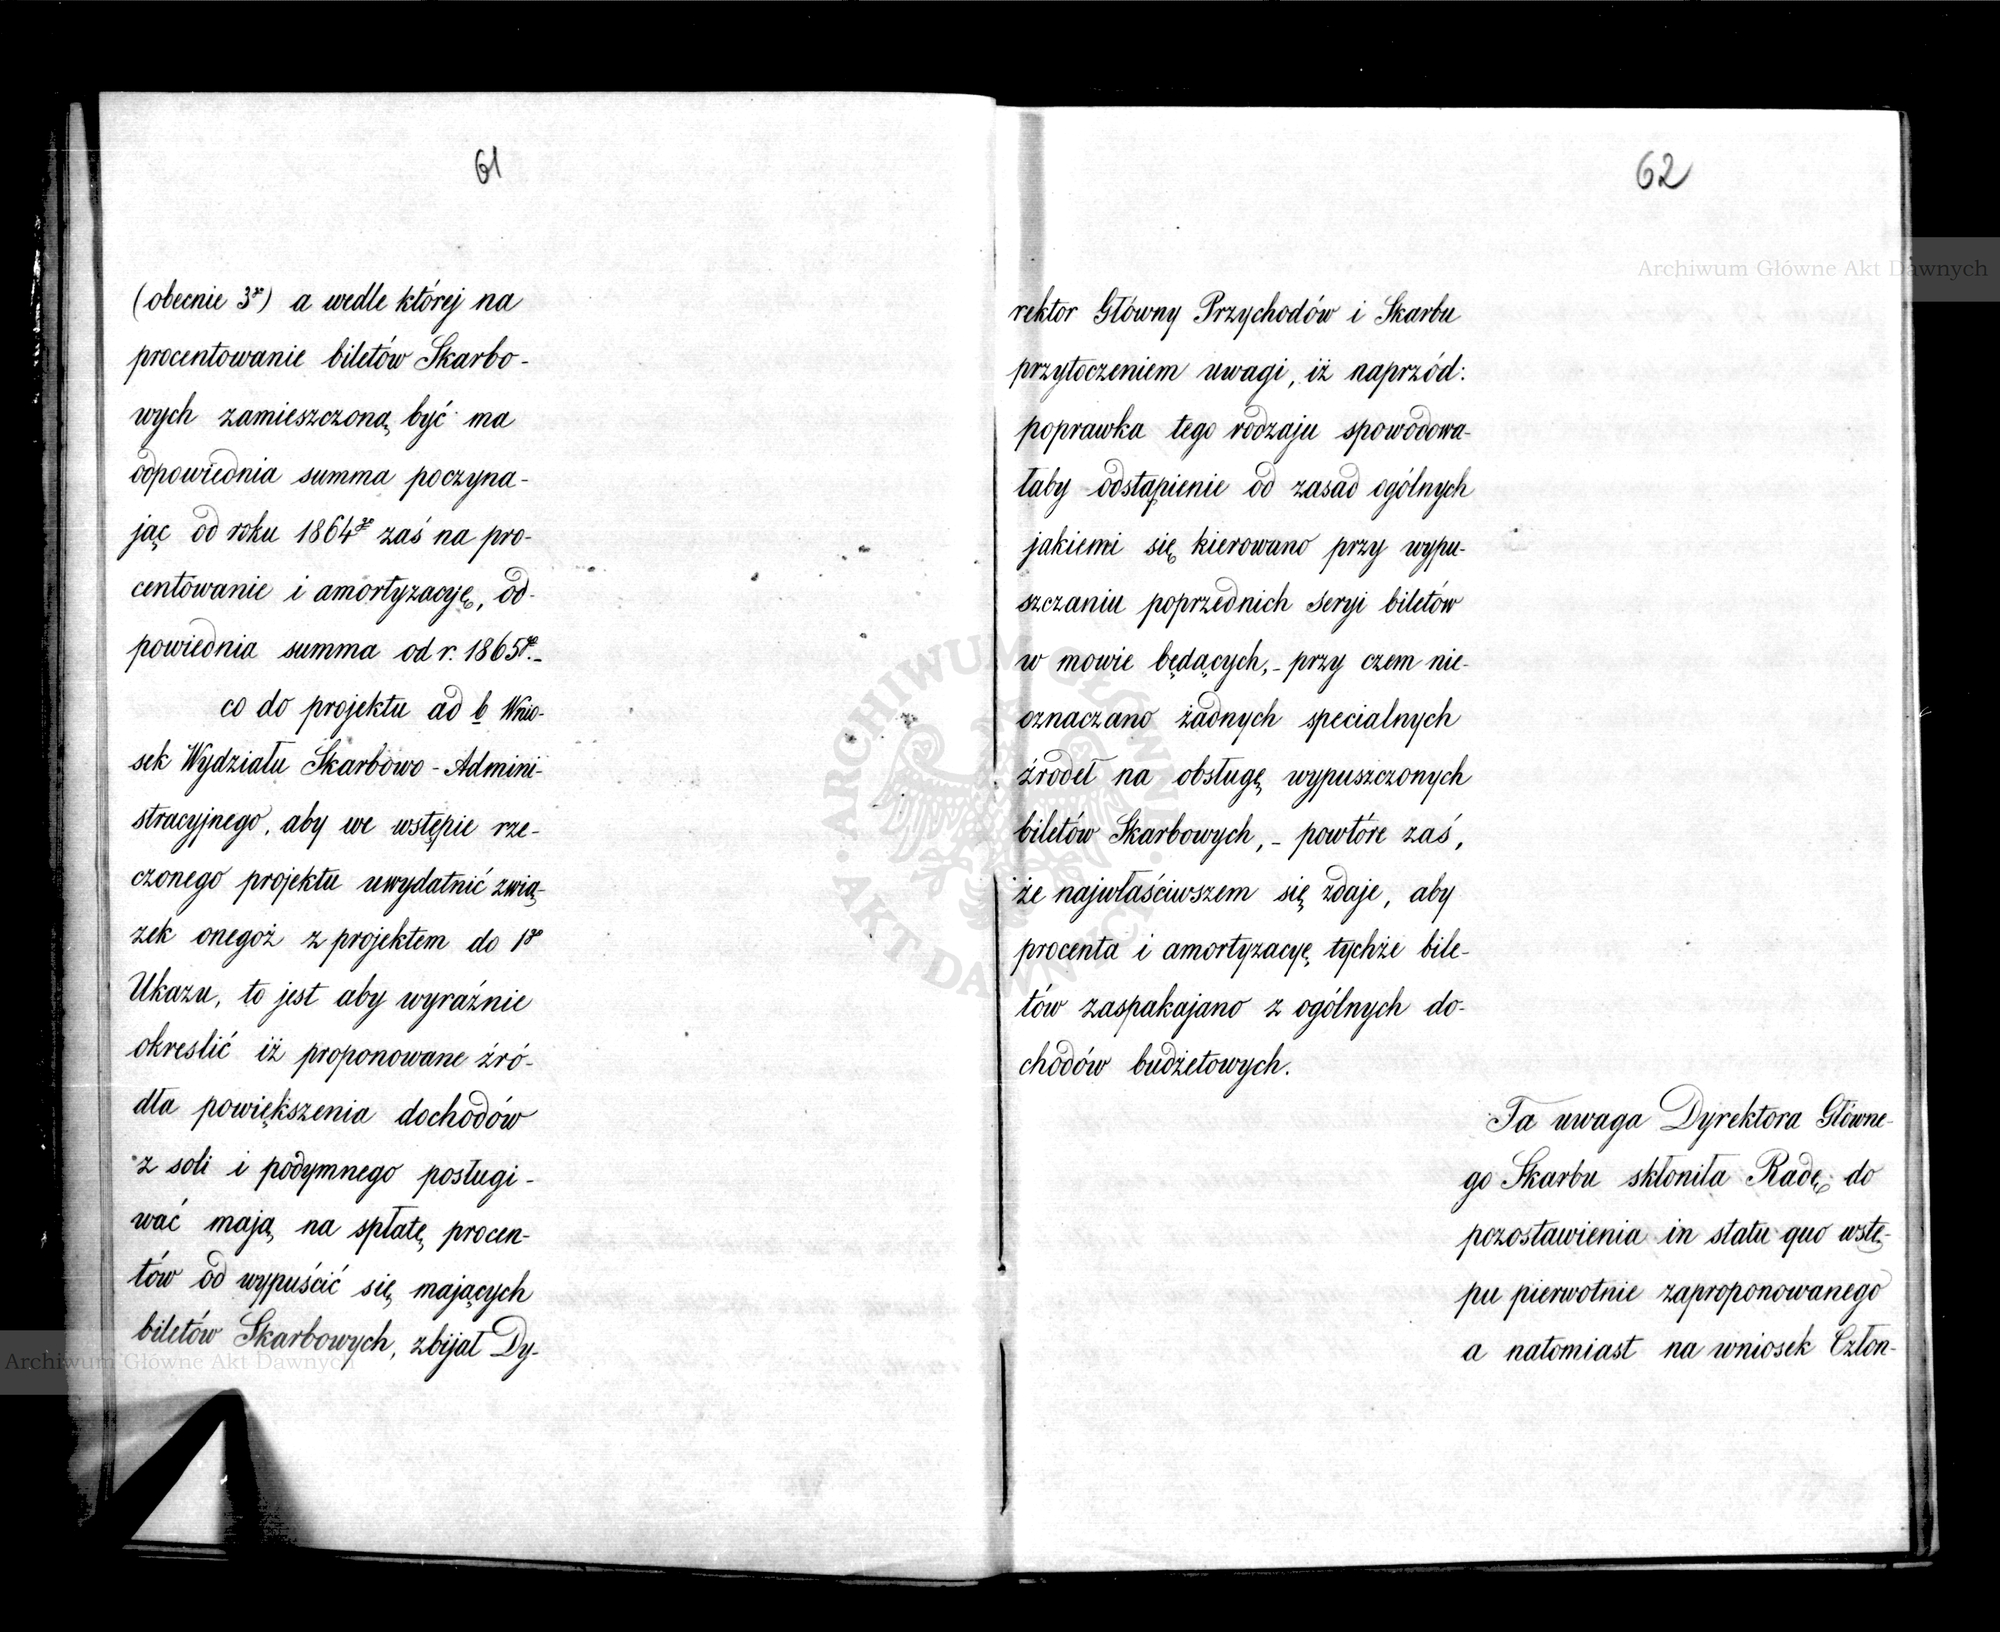 61
(obecnie 3º) a wedle której na
procentowanie biletów Skarbo-
wych zamieszczoną być ma
odpowiednia summa poczyna-
jąc od roku 1864º zaś na pro-
centowanie i amortyzacyę, od-
powiednia summa od r. 1865º.-
co do projektu ad b Wnio-
sek Wydziału Skarbowo-Admini-
stracyjnego, aby we wstępie rze-
czonego projektu uwydatnić zwią-
zek onegoż z projektem do 1º
Ukazu, to jest aby wyraźnie
okreslić iż proponowane źró-
dła powiększenia dochodów
z soli i podymnego posługi-
wać mają na spłatę procen-
tów od wypuścić się mających
biletów Skarbowych, zbijał Dy-
62
rektor Główny Przychodów i Skarbu
przytoczeniem uwagi, iż naprzód:
poprawka tego rodzaju spowodowa-
łaby odstąpienie od zasad ogólnych
jakiemi się kierowano przy wypu-
szczaniu poprzednich seryi biletów
w mowie będących,- przy czem nie-
oznaczano żadnych specialnych
źrodeł na obsługę wypuszczonych
biletów Skarbowych,- powtóre zaś,
że najwłaściwszem się zdaje, aby
procenta i amortyzacyę tychże bile-
tów zaspakajano z ogólnych do-
chodów budżetowych.
Ta uwaga Dyrektora Główne-
go Skarbu skłoniła Radę do
pozostawienia in statu quo wstę-
pu pierwotnie zaproponowanego
a natomiast na wniosek Człon-
Archiwum Główne Akt Dawnych
Archiwum Główne Akt Dawnych
ARCHIWUM GŁÓWNE · AKT DAWNYCH ·